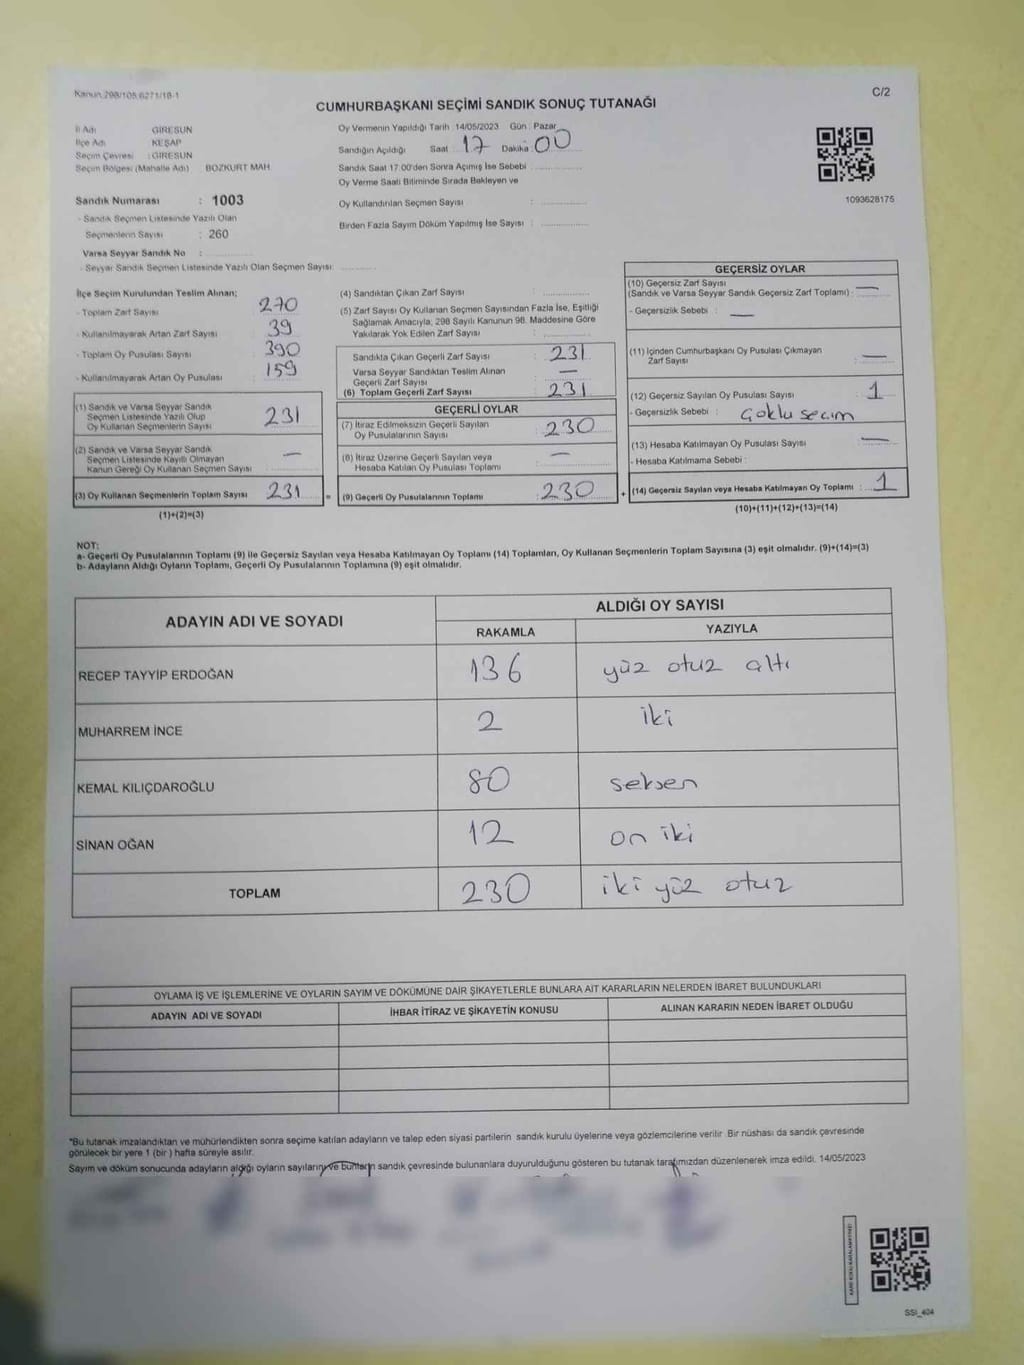 Kanun 298/105 6271/18-1
C/2
CUMHURBAŞKANI SEÇİMİ SANDIK SONUÇ TUTANAĞI
İl Adı GİRESUN
İlçe Adı KEŞAP
Seçim Çevresi : GİRESUN
Seçim Bölgesi (Mahalle Adı) BOZKURT MAH
Sandık Numarası : 1003
- Sandık Seçmen Listesinde Yazılı Olan
Seçmenlerin Sayısı : 260
Varsa Seyyar Sandık No :
- Seyyar Sandık Seçmen Listesinde Yazılı Olan Seçmen Sayısı:
Oy Vermenin Yapıldığı Tarih 14/05/2023 Gün : Pazar
Sandığın Açıldığı Saat : 17 Dakika : 00
Sandık Saat 17:00'den Sonra Açılmış İse Sebebi
Oy Verme Saati Bitiminde Sırada Bekleyen ve
Oy Kullandırılan Seçmen Sayısı :
Birden Fazla Sayım Döküm Yapılmış İse Sayısı :
1093628175
İlçe Seçim Kurulundan Teslim Alınan;
- Toplam Zarf Sayısı : 270
- Kullanılmayarak Artan Zarf Sayısı : 39
- Toplam Oy Pusulası Sayısı : 390
- Kullanılmayarak Artan Oy Pusulası : 159
(1) Sandık ve Varsa Seyyar Sandık
Seçmen Listesinde Yazılı Olup
Oy Kullanan Seçmenlerin Sayısı : 231
(2) Sandık ve Varsa Seyyar Sandık
Seçmen Listesinde Kayıtlı Olmayan
Kanun Gereği Oy Kullanan Seçmen Sayısı : —
(3) Oy Kullanan Seçmenlerin Toplam Sayısı : 231
(1)+(2)=(3)
(4) Sandıktan Çıkan Zarf Sayısı :
(5) Zarf Sayısı Oy Kullanan Seçmen Sayısından Fazla İse, Eşitliği
Sağlamak Amacıyla; 298 Sayılı Kanunun 98. Maddesine Göre
Yakılarak Yok Edilen Zarf Sayısı :
Sandıkta Çıkan Geçerli Zarf Sayısı : 231
Varsa Seyyar Sandıktan Teslim Alınan
Geçerli Zarf Sayısı : —
(6) Toplam Geçerli Zarf Sayısı : 231
GEÇERLİ OYLAR
(7) İtiraz Edilmeksizin Geçerli Sayılan
Oy Pusulalarının Sayısı : 230
(8) İtiraz Üzerine Geçerli Sayılan veya
Hesaba Katılan Oy Pusulası Toplamı : —
= (9) Geçerli Oy Pusulalarının Toplamı : 230
GEÇERSİZ OYLAR
(10) Geçersiz Zarf Sayısı
(Sandık ve Varsa Seyyar Sandık Geçersiz Zarf Toplamı) : —
- Geçersizlik Sebebi : —
(11) İçinden Cumhurbaşkanı Oy Pusulası Çıkmayan
Zarf Sayısı : —
(12) Geçersiz Sayılan Oy Pusulası Sayısı : 1
- Geçersizlik Sebebi : Çoklu seçim
(13) Hesaba Katılmayan Oy Pusulası Sayısı : —
- Hesaba Katılmama Sebebi :
+ (14) Geçersiz Sayılan veya Hesaba Katılmayan Oy Toplamı : 1
(10)+(11)+(12)+(13)=(14)
NOT:
a- Geçerli Oy Pusulalarının Toplamı (9) ile Geçersiz Sayılan veya Hesaba Katılmayan Oy Toplamı (14) Toplamları, Oy Kullanan Seçmenlerin Toplam Sayısına (3) eşit olmalıdır. (9)+(14)=(3)
b- Adayların Aldığı Oyların Toplamı, Geçerli Oy Pusulalarının Toplamına (9) eşit olmalıdır.
ADAYIN ADI VE SOYADI ALDIĞI OY SAYISI
RAKAMLA YAZIYLA
RECEP TAYYİP ERDOĞAN 136 yüz otuz altı
MUHARREM İNCE 2 iki
KEMAL KILIÇDAROĞLU 80 seksen
SİNAN OĞAN 12 on iki
TOPLAM 230 iki yüz otuz
OYLAMA İŞ VE İŞLEMLERİNE VE OYLARIN SAYIM VE DÖKÜMÜNE DAİR ŞİKAYETLERLE BUNLARA AİT KARARLARIN NELERDEN İBARET BULUNDUKLARI
ADAYIN ADI VE SOYADI İHBAR İTİRAZ VE ŞİKAYETİN KONUSU ALINAN KARARIN NEDEN İBARET OLDUĞU
*Bu tutanak imzalandıktan ve mühürlendikten sonra seçime katılan adayların ve talep eden siyasi partilerin sandık kurulu üyelerine veya gözlemcilerine verilir. Bir nüshası da sandık çevresinde
görülecek bir yere 1 (bir) hafta süreyle asılır.
Sayım ve döküm sonucunda adayların aldığı oyların sayılarını ve bunların sandık çevresinde bulunanlara duyurulduğunu gösteren bu tutanak tarafımızdan düzenlenerek imza edildi. 14/05/2023
SSİ_404